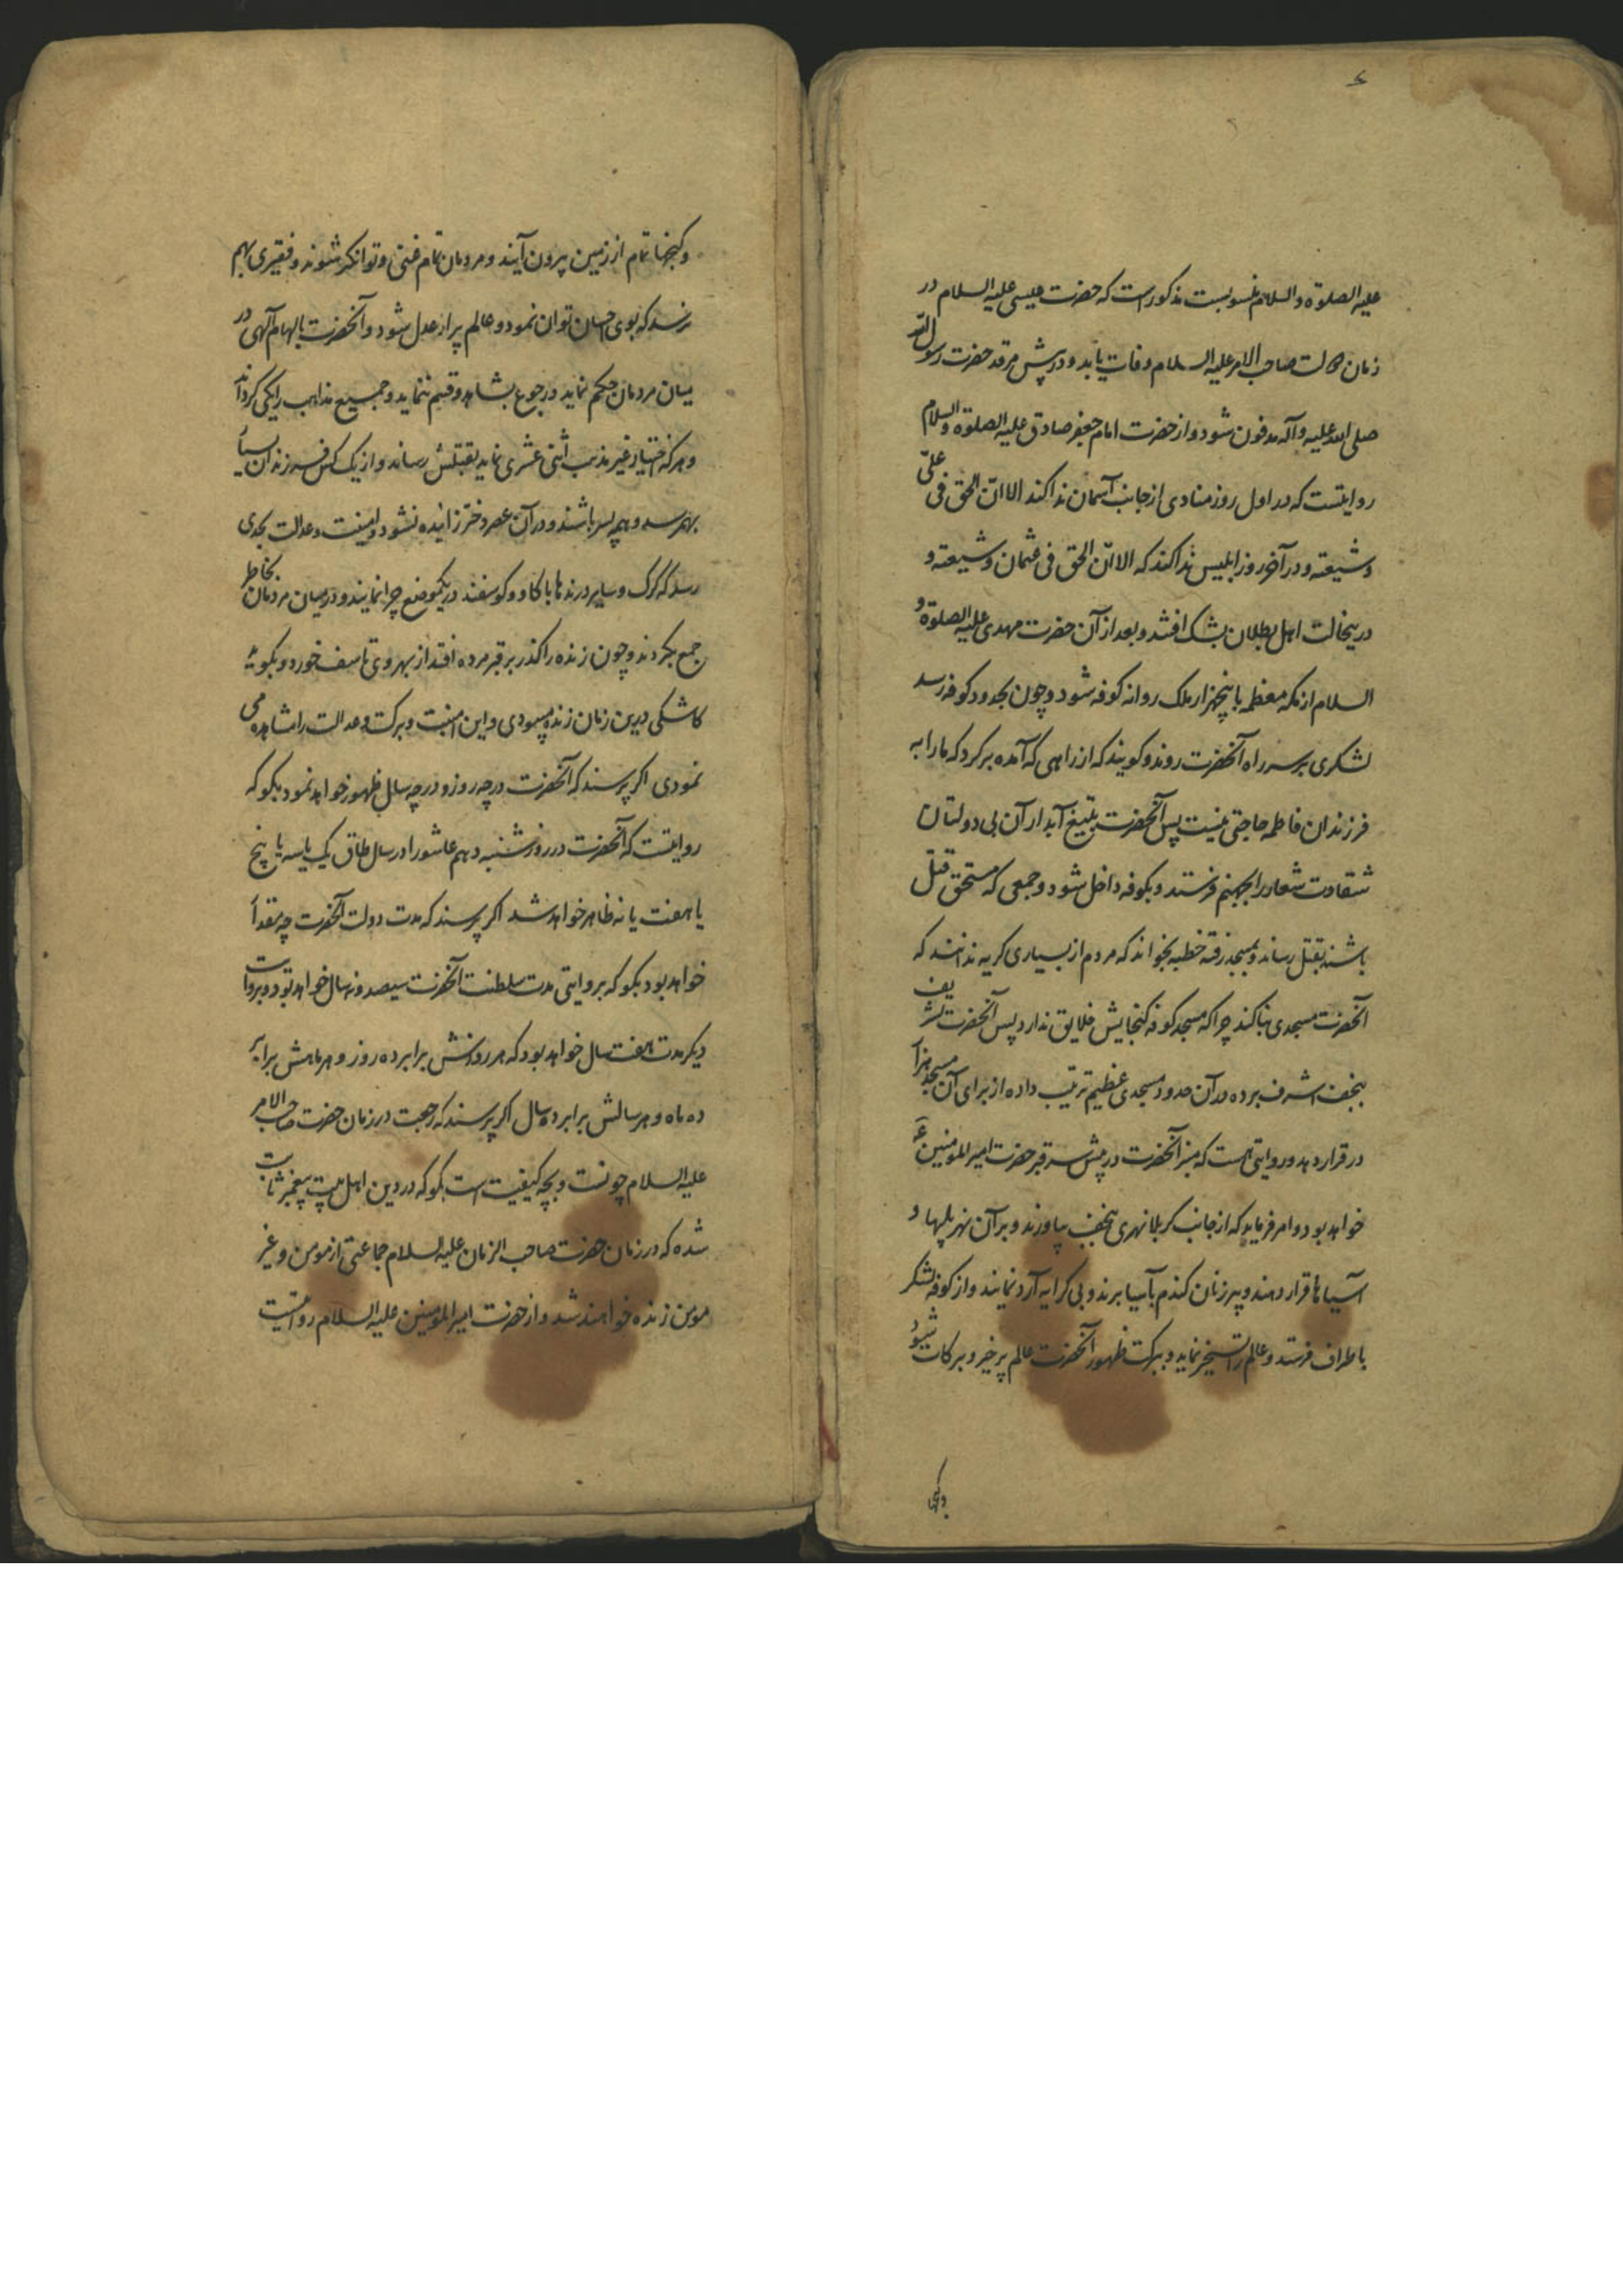 ء
علیه الصلوة والسلام منسوبست مذکور است که حضرت عیسی علیه السلام در
زمان صاحب الامر علیه السلام وفات یابد و در پیش مرقد حضرت رسول الله
صلی الله علیه وآله مدفون شود و از حضرت امام جعفر صادق علیه الصلوة والسلام
روایتست که در اول روز منادی از جانب آسمان ندا کند الا انّ الحق فی علیّ
وشیعته و در آخر روز ابلیس ندا کند که الا انّ الحق فی عثمان وشیعته و
درینحالت اهل بطلان بشک افتند و بعد از آن حضرت مهدی علیه الصلوة و
السلام از مکه معظمه با پنجهزار ملک روانه کوفه شود و چون بحدود کوفه رسد
لشکری بر سر راه آنحضرت روند و کویند که از راهی که آمده برکرد که ما را به
فرزندان فاطمه حاجتی نیست پس آنحضرت بتیغ آبدار آن بی دولتان
شقاوت شعار را بجهنم فرستد و بکوفه داخل شود و جمعی که مستحق قتل
باشند بقتل رساند و بمسجد رفته خطبه بخواند که مردم از بسیاری کریه ندانند که
آنحضرت مسجدی بنا کند چرا که مسجد کوفه کنجایش خلایق ندارد پس آنحضرت تشریف
بنجف اشرف برده در آن حدود مسجدی عظیم ترتیب داده از برای آن مسجد هزار
در قرار دهد و روایتی هست که منبر آنحضرت در پیش سر قبر حضرت امیر المومنین ع
خواهد بود و امر فرماید که از جانب کربلا نهری بنجف بیاورند و بر آن نهر پلها و
آسیاها قرار دهند و پیرزنان کندم بآسیا برند و بی کرایه آرد نمایند و از کوفه لشکر
باطراف فرستد و عالم را تسخیر نماید و ببرکت ظهور آنحضرت عالم پر خیر و برکات شود
وکنجها
وکنجها تمام از زمین بیرون آیند و مردمان تمام غنی و توانکر شوند و فقیری بهم
نرسد که بوی احسان توان نمود و عالم پر از عدل شود و آنحضرت بالهام آلهی در
میان مردمان حکم نماید و رجوع بشاهد و قسم ننماید و جمیع مذاهب را یکی کرداند
و هر که اختیار غیر مذهب اثنی عشری نماید بقتلش رساند و از یک کس فرزندان بسیا
بهم رسد و همه پسر باشند و در آن عصر دختر زائیده نشود و امنیت و عدالت بحدی
رسد که کرک و سایر درندها با کاو و کوسفند در یکموضع چرا نمایند و در میان مردمان بخاطر
جمع بکردند و چون زنده را کذر بر قبر مرده افتد از بهر وی تاسف خورد و بکوید
کاشکی درین زمان زنده میبودی و این امنیت و برکت و عدالت را مشاهده می
نمودی اکر پرسند که آنحضرت در چه روز و در چه سال ظهور خواهد نمود بکو که
روایتست که آنحضرت در روز شنبه دهم عاشورا در سال طاق یک یا سه یا پنج
یا هفت یا نه ظاهر خواهد شد اکر پرسند که مدت دولت آنحضرت چه مقدا
خواهد بود بکو که بروایتی مدت سلطنت آنحضرت سیصد و نه سال خواهد بود و بروایت
دیکر مدت هفت سال خواهد بود که هر روزش برابر ده روز و هر ماهش برابر
ده ماه و هر سالش برابر ده سال اکر پرسند که رجعت در زمان حضرت صاحب الامر
علیه السلام چونست و بچه کیفیت است بکو که در دین اهل بیت پیغمبر ثابت
شده که در زمان حضرت صاحب الزمان علیه السلام جماعتی از مومن و غیر
مومن زنده خواهند شد و از حضرت امیر المومنین علیه السلام روایتست